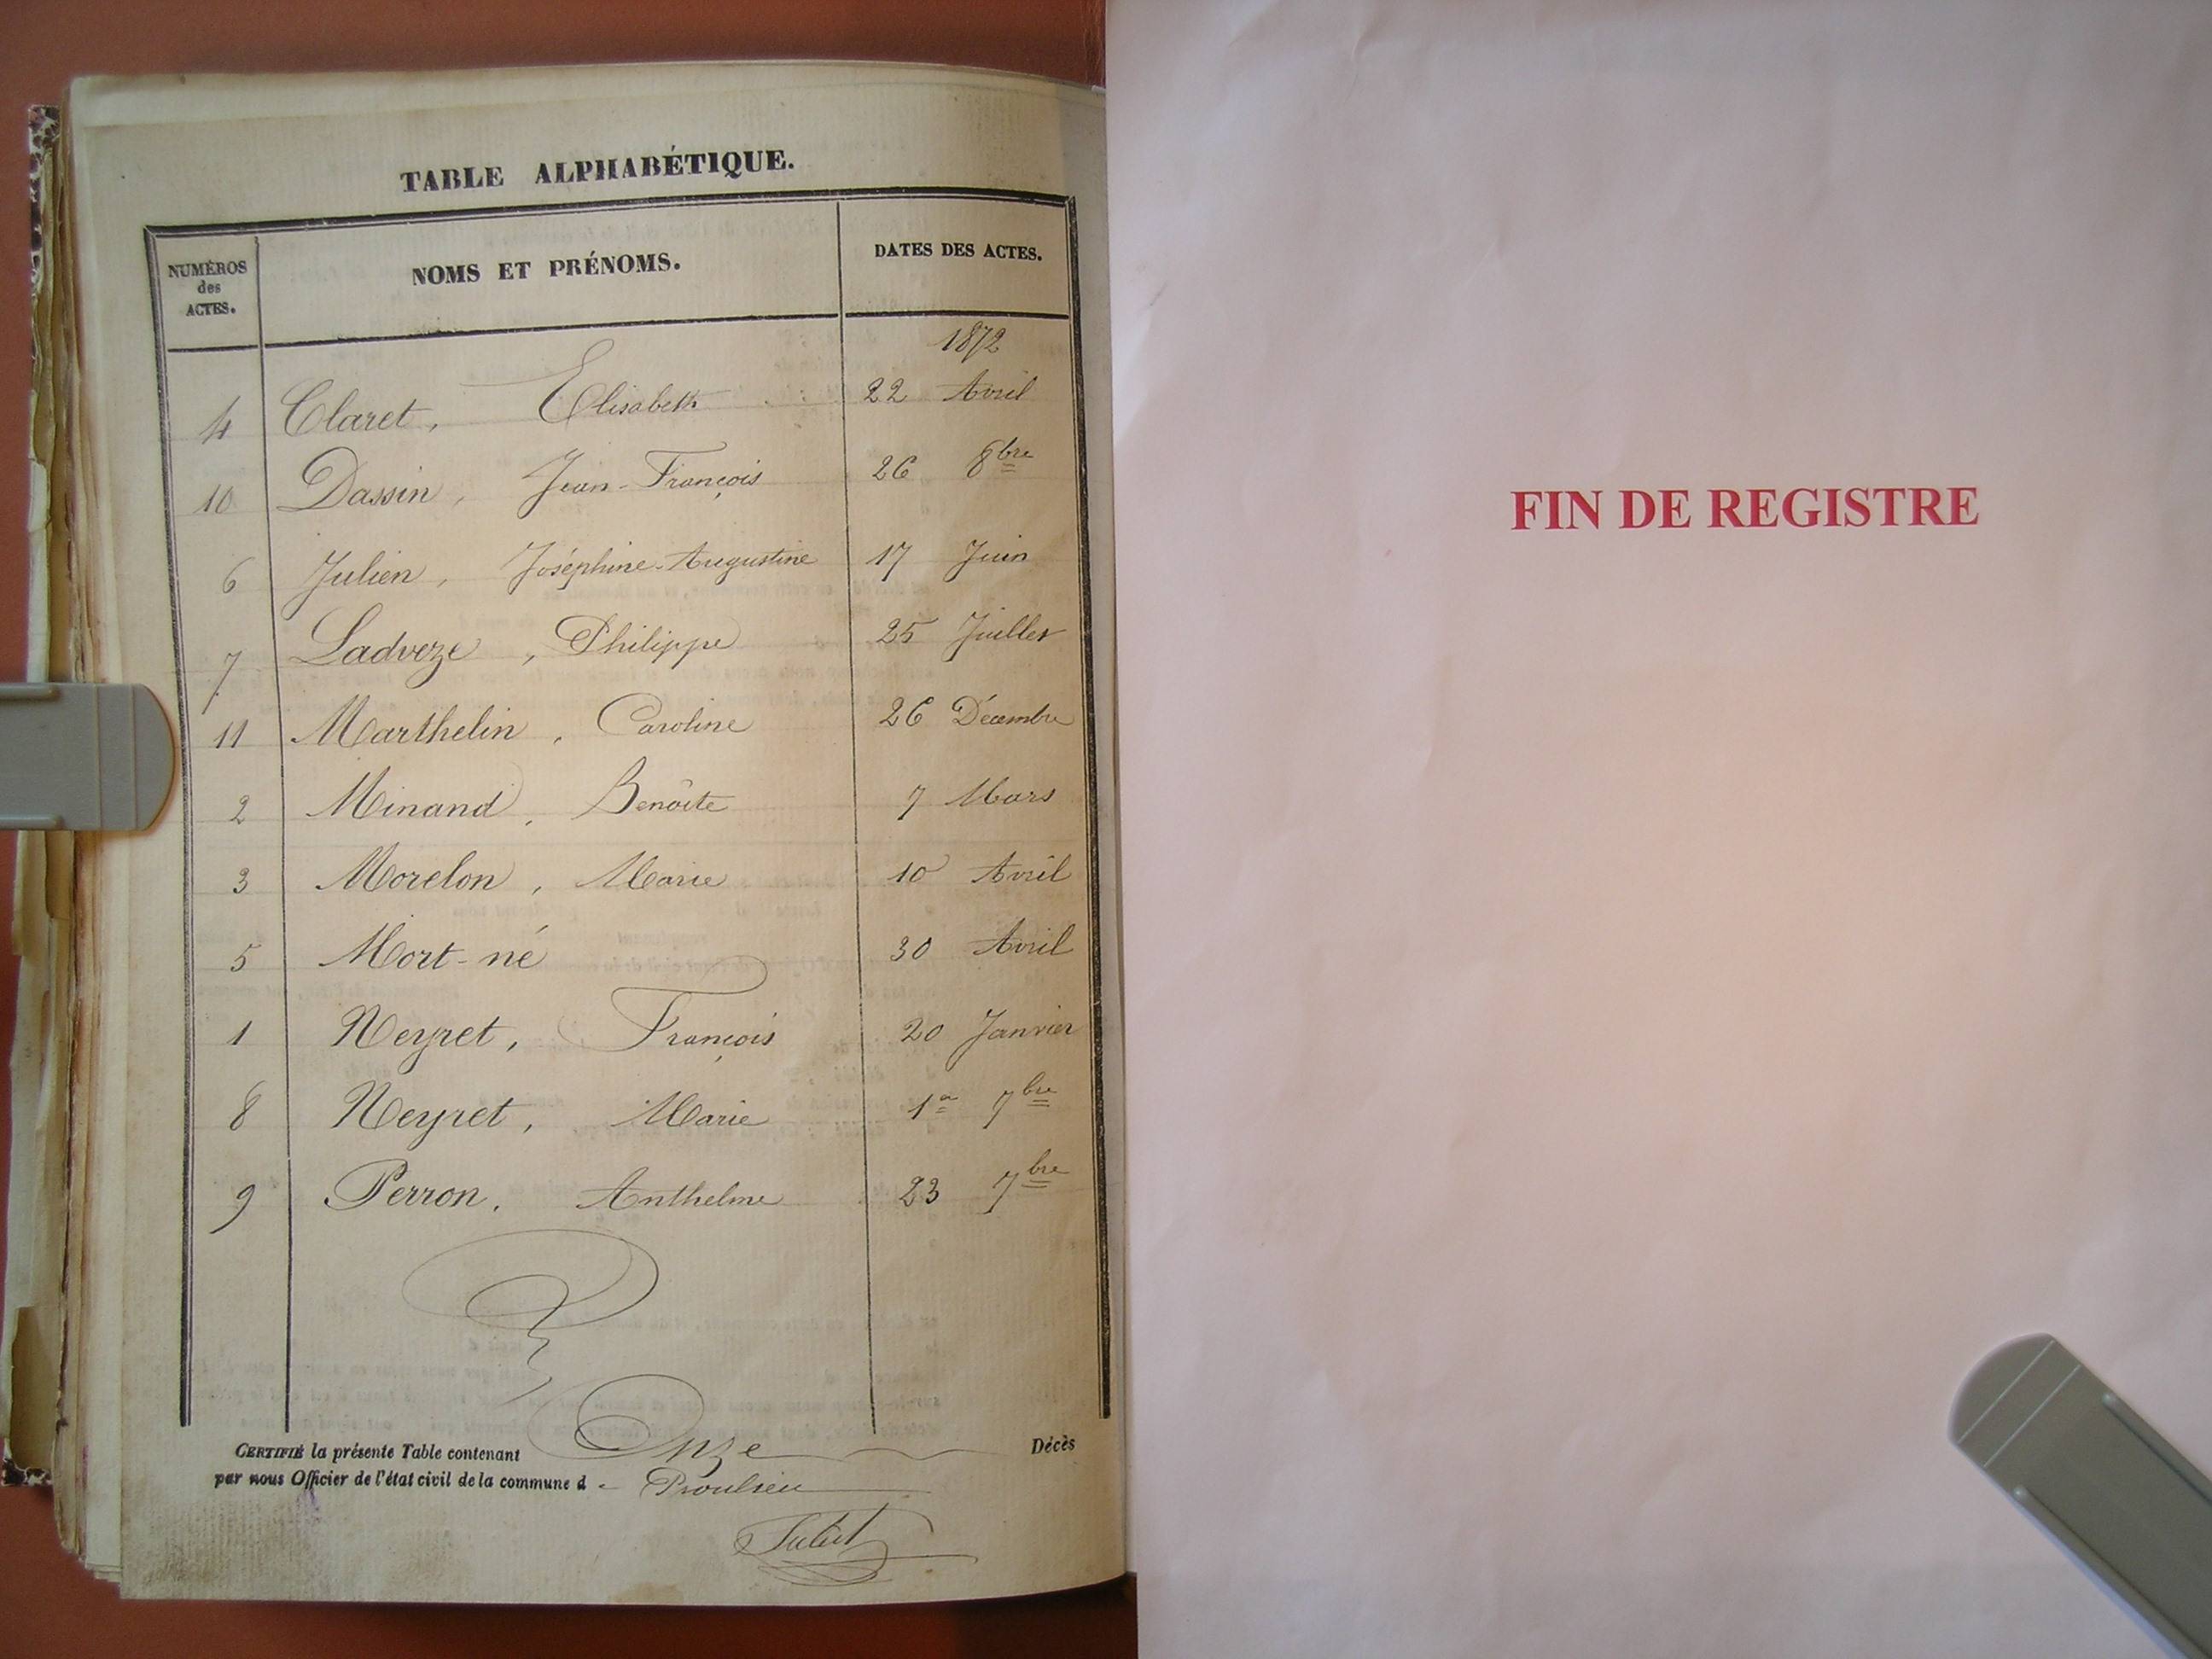 TABLE ALPHABÉTIQUE.
NUMÉROS des ACTES. NOMS ET PRÉNOMS. DATES DES ACTES.
1872
4 Claret, Elisabeth 22 Avril
10 Dassin, Jean-François 26 8bre
6 Julien, Joséphine-Augustine 17 Juin
7 Ladveze, Philippe 25 Juillet
11 Marthelin, Caroline 26 Décembre
2 Minand, Benoîte 7 Mars
3 Morelon, Marie 10 Avril
5 Mort-né 30 Avril
1 Neyret, François 20 Janvier
8 Neyret, Marie 1er 7bre
9 Perron, Anthelme 23 7bre
CERTIFIÉ la présente Table contenant Onze Décès
par nous Officier de l'état civil de la commune d - Proulieu
FIN DE REGISTRE